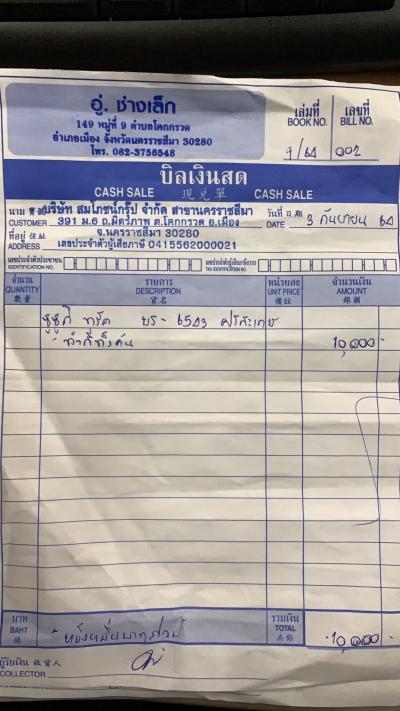 อู่. ช่างเล็ก
149 หมู่ที่ 9 ตำบลโคกกรวด
อำเภอเมือง จังหวัดนครราชสีมา 30280
โทร. 082-3756548
เล่มที่ เลขที่
BOOK NO. BILL NO.
9/64 002
บิลเงินสด
CASH SALE 現兑單 CASH SALE
นาม บริษัท สมโภชน์กรุ๊ป จำกัด สาขานครราชสีมา วันที่ 日期
CUSTOMER 391 ม.6 ถ.มิตรภาพ ต.โคกกรวด อ.เมือง DATE 3 กันยายน 64
ที่อยู่ 住址 จ.นครราชสีมา 30280
ADDRESS เลขประจำตัวผู้เสียภาษี 0415562000021
เลขประจำตัวประชาชน เลขประจำตัวผู้เสียภาษีอากร
IDENTIFICATION NO. TAX IDENTIFICATION NO.
จำนวน รายการ หน่วยละ จำนวนเงิน
QUANTITY DESCRIPTION UNIT PRICE AMOUNT
數量 貨名 備註 銀額
ซูซูกิ ทรัค บร - 6543 ศรีสะเกษ
- ทำสีทั้งคัน 10,000 -
บาท รวมเงิน
BAHT หนึ่งหมื่นบาทถ้วน TOTAL 10,000 -
銖 共銀
ผู้รับเงิน 收貨人
COLLECTOR